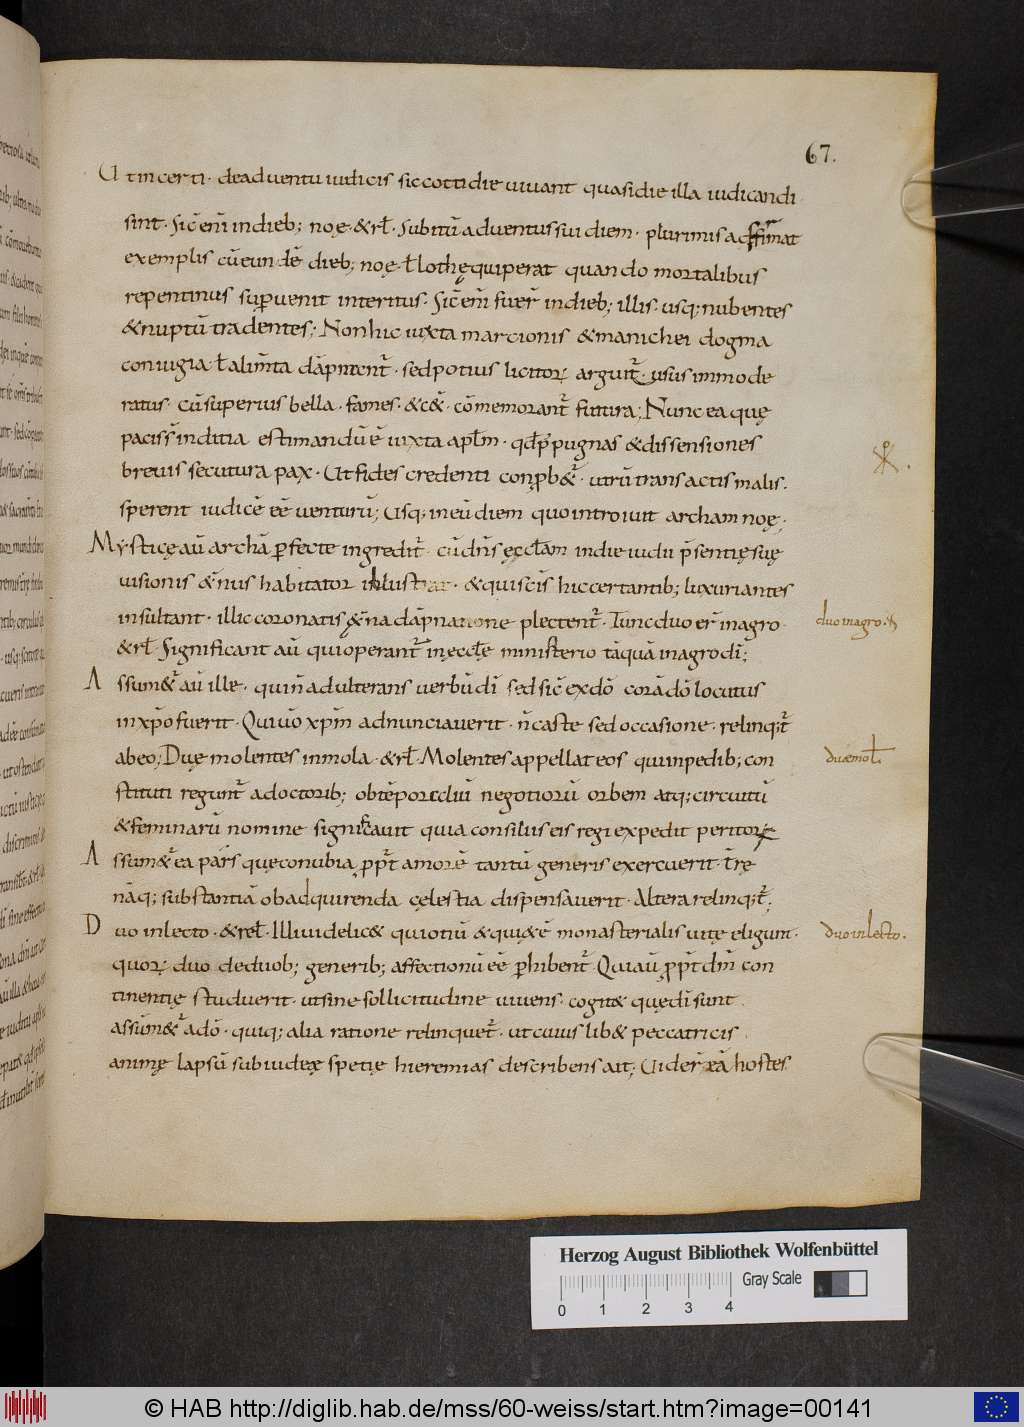 67.
Ut incerti· de adventu iudicis sic cottidie vivant quasi die illa iudicandi
sint· Sic̄ enī in dieb; noę· &rł· Subitū adventus sui diem· plurimis adfirmat
exemplis cū eundē dieb; noę· ł loth ęquiperat quando mortalibus
repentinus suꝑvenit interitus· Sic̄ enī fuer̄ in dieb; illis· usq; nubentes
& nuptū tradentes; Non hic iuxta marcionis & manichei dogma
coniugia ł alim̄ta
sed potius licitoꝝ arguit᷑· usus immode
ratus· cū superius bella· fames· &c&᷑· cōmemorant᷑ futura; Nunc ea quę
pacis s̄ inditia estimandū ē iuxta apłm· qd̄ p̄ pugnas & dissensiones
brevis secutura pax· Ut fides credenti conꝓb&᷑· utrū transactis malis·
sperent iudicē eē venturū; Usq; in eū diem quo introivit archam noę;
Mysticę aū archā ꝑfecte ingredit᷑· cū dn̄s ęcclam in die iudii p̄sentię suę
visionis &n̄us habitator inlustrat· & qui sc̄is hic certantib; luxuriantes
insultant· illic coronatis
plectent᷑· Tunc duo er̄ in agro·
duo in agro·
&rł· Significant aū qui operant᷑ in ęcclę ministerio tāquā in agro dī;
Assum&᷑ aū ille· qui n̄ adulterans verbū dī sed sic̄ ex dō corā dō locutus
in xp̄o fuerit· Qui v̄o xp̄m adnunciaverit· n̄ caste sed occasione· relinq;t᷑
abeo; Duę molentes in mola· &rł· Molentes appellat eos qui in pedib; con
duæ moł·
stituti regunt᷑ a doctorib; ob tēporediū negotiorū orbem atq; circuitū
& feminarū nomine significavit quia consilus eis regi expedit peritoꝝ
Assum&᷑ ea pars quę conubia ꝓpt᷑ amorē tantū generis exercuerit· t̄rę
nāq; substantiā ob adquirenda cęlestia dispensaverit· Altera relinq;t᷑;
Duo in lecto· &reł· Illi videlic& qui otiū & qui&ē monasterialis vitę eligunt·
duo in lecto·
quoꝝ duo de duob; generib; affectionū eē ꝑhibent᷑ Quia ū ꝓpt᷑ dm̄ con
tinentię studuerit· ut sine sollicitudine vivens· cogit& quę dī sunt
assum&᷑ a dō· quiq; alia ratione relinquet᷑· ut cuius lib& peccatricis·
animę lapsū sub iudeę spetię hieremias describens ait; Vider̄ eā hostes
Herzog August Bibliothek Wolfenbüttel
Gray Scale
0 1 2 3 4
© HAB http://diglib.hab.de/mss/60-weiss/start.htm?image=00141